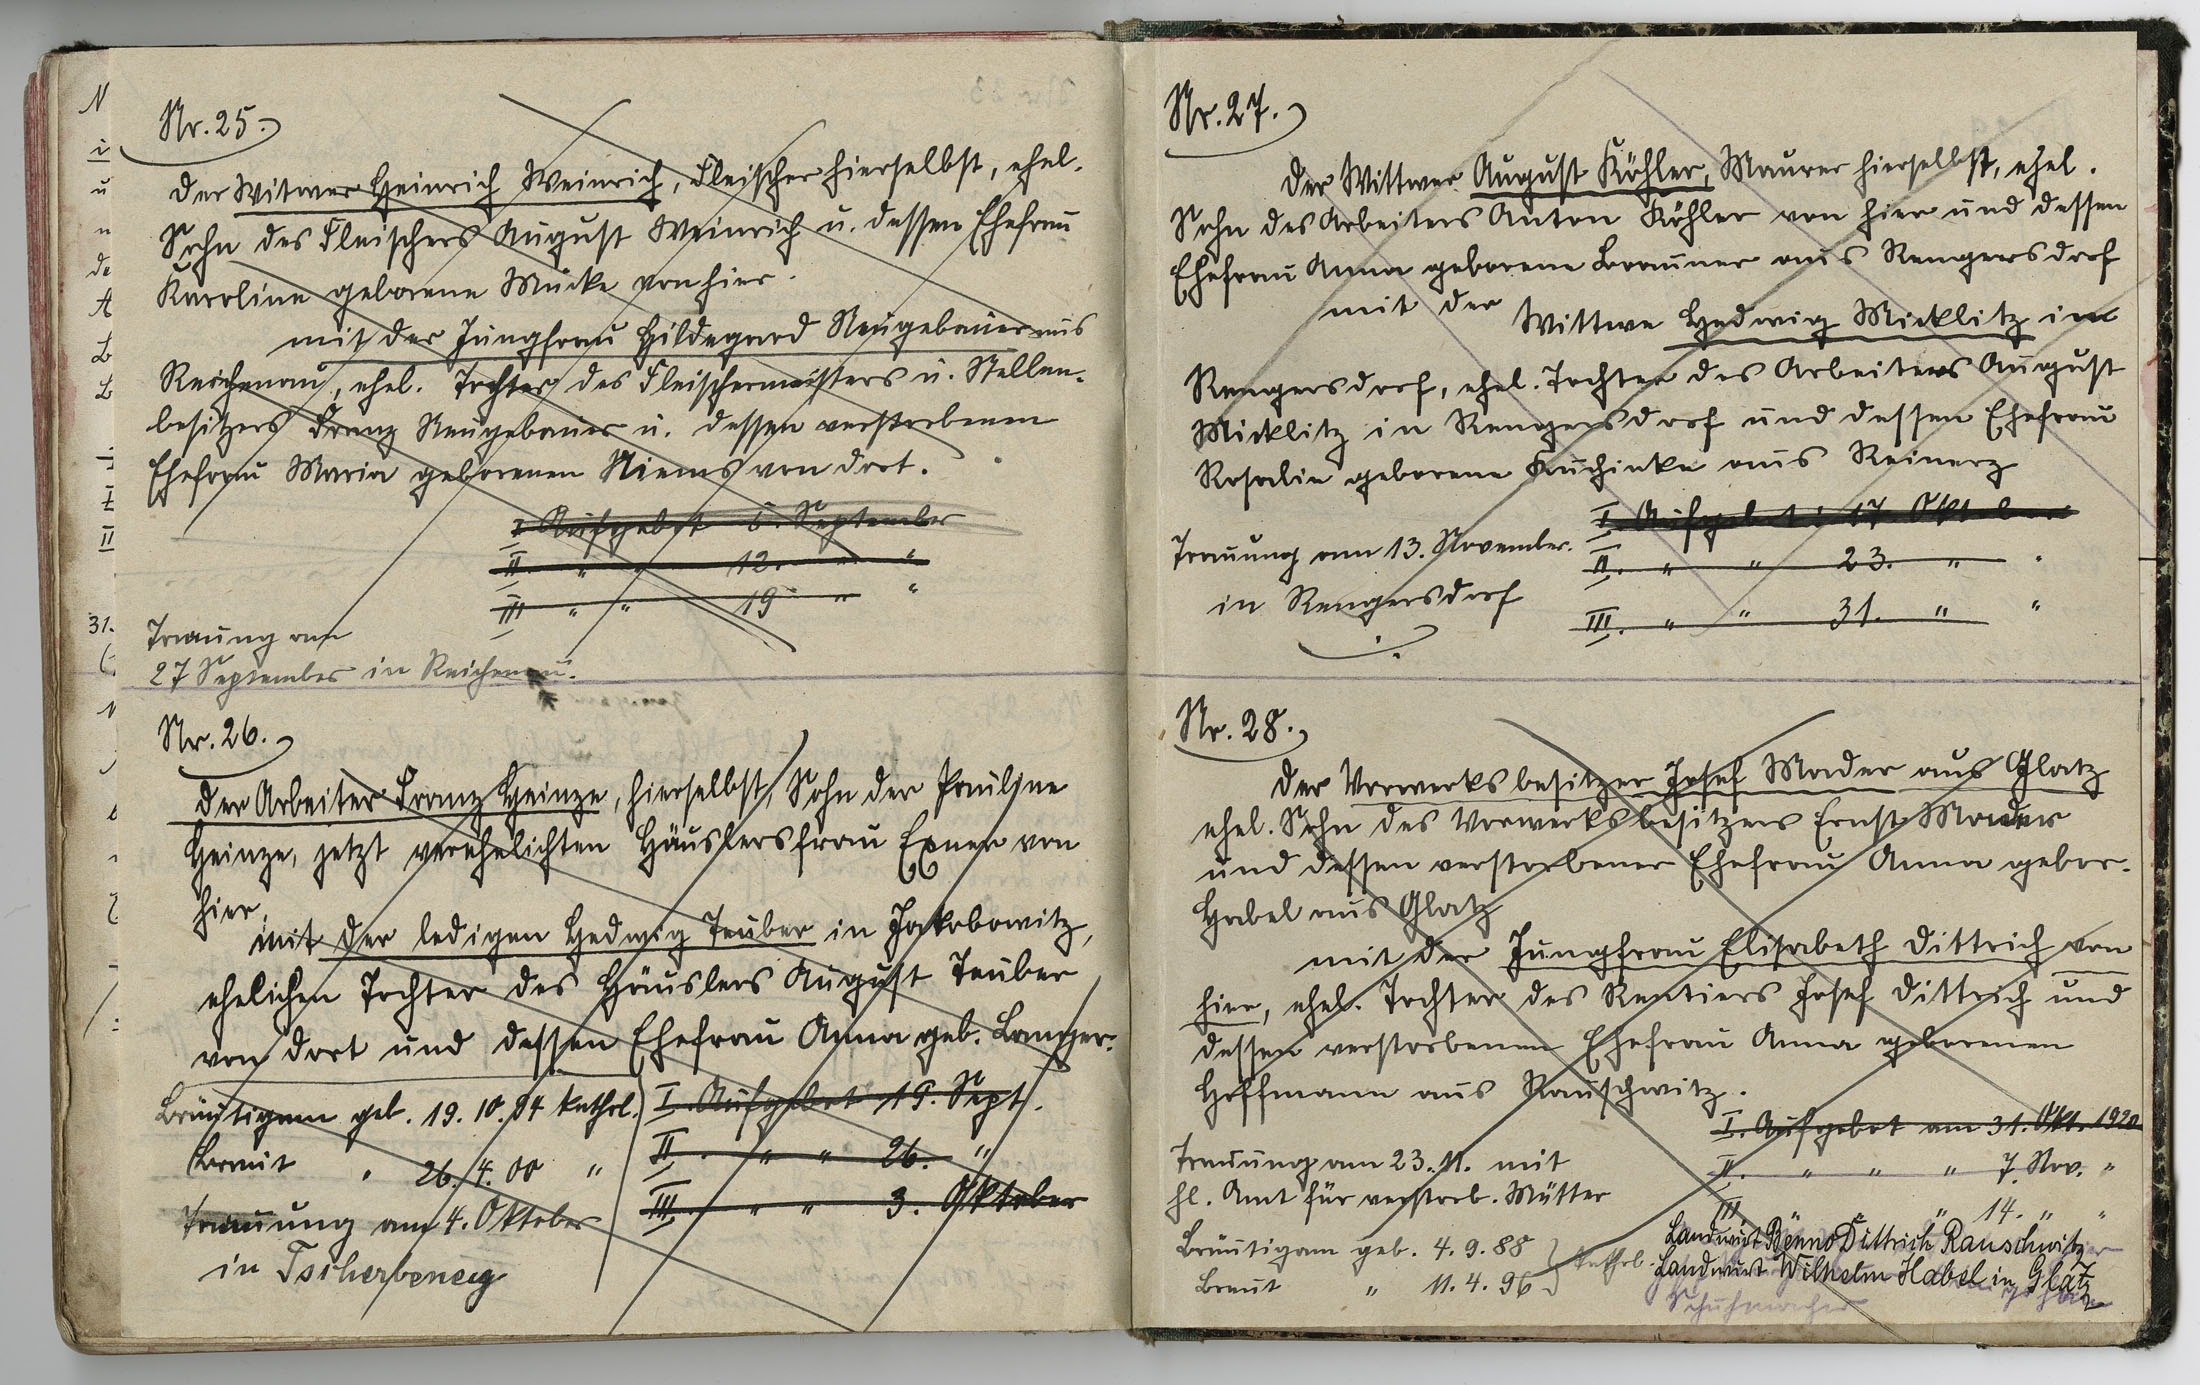 Nr. 25.
Der Witwer Heinrich Weinrich, Fleischer hierselbst, ehel.
Sohn des Fleischers August Weinrich u. dessen Ehefrau
Karoline geborene Mücke von hier.
mit der Jungfrau Hildegard Neugebauer aus
Reichenau, ehel. Tochter des Fleischermeisters u. Stellen-
besitzers Franz Neugebauer u. dessen verstorbenen
Ehefrau Maria geborenen Niems von dort.
I Aufgebot 5. September
II. " " 12. " "
III " " 19 " "
Trauung am
27 September in Reichenau.
Nr. 26.
Der Arbeiter Franz Heinze, hierselbst, Sohn der Pauline
Heinze, jetzt verehelichten Häuslersfrau Exner von
hier,
mit der ledigen Hedwig Teuber in Jakobowitz,
ehelichen Tochter des Häuslers August Teuber
von dort und dessen Ehefrau Anna geb. Langer.
Bräutigam geb. 19. 10. 94 kathol.
Braut " 26. 4. 00 "
I. Aufgebot 19. Sept.
II. " " 26. "
III. " " 3. Oktober
Trauung am 4. Oktober
in Tscherbeney
Nr. 27.
Der Wittwer August Köhler, Maurer hierselbst, ehel.
Sohn des Arbeiters Anton Köhler von hier und dessen
Ehefrau Anna geborene Brauner aus Rengersdorf
mit der Wittwe Hedwig Micklitz in
Rengersdorf, ehel. Tochter des Arbeiters August
Micklitz in Rengersdorf und dessen Ehefrau
Rosalie geborene aus Reinerz
I. Aufgebot: 17. Oktober
II. " " 23. " "
III. " " 31. " "
Trauung am 13. November.
in Rengersdorf
Nr. 28.
Der Vorwerksbesitzer Josef Mader aus Glatz
ehel. Sohn des Vorwerksbesitzers Ernst Mader
und dessen verstorbener Ehefrau Anna gebor.
Habel aus Glatz
mit der Jungfrau Elisabeth Dittrich von
hier, ehel. Tochter des Rentiers Josef Dittrich und
dessen verstorbenen Ehefrau Anna geborenen
Hoffmann aus Rauschwitz.
I. Aufgebot am 31. Okt. 1920
II. " " " 7. Nov. "
III " " " 14. " "
Trauung am 23. 11. mit
hl. Amt für verstorb. Mütter
Bräutigam geb. 4. 9. 88
Braut " 11. 4. 96
kathol.
Landwirt Benno Dittrich Rauschwitz
Landwirt Wilhelm Habel in Glatz
Schuhmacher